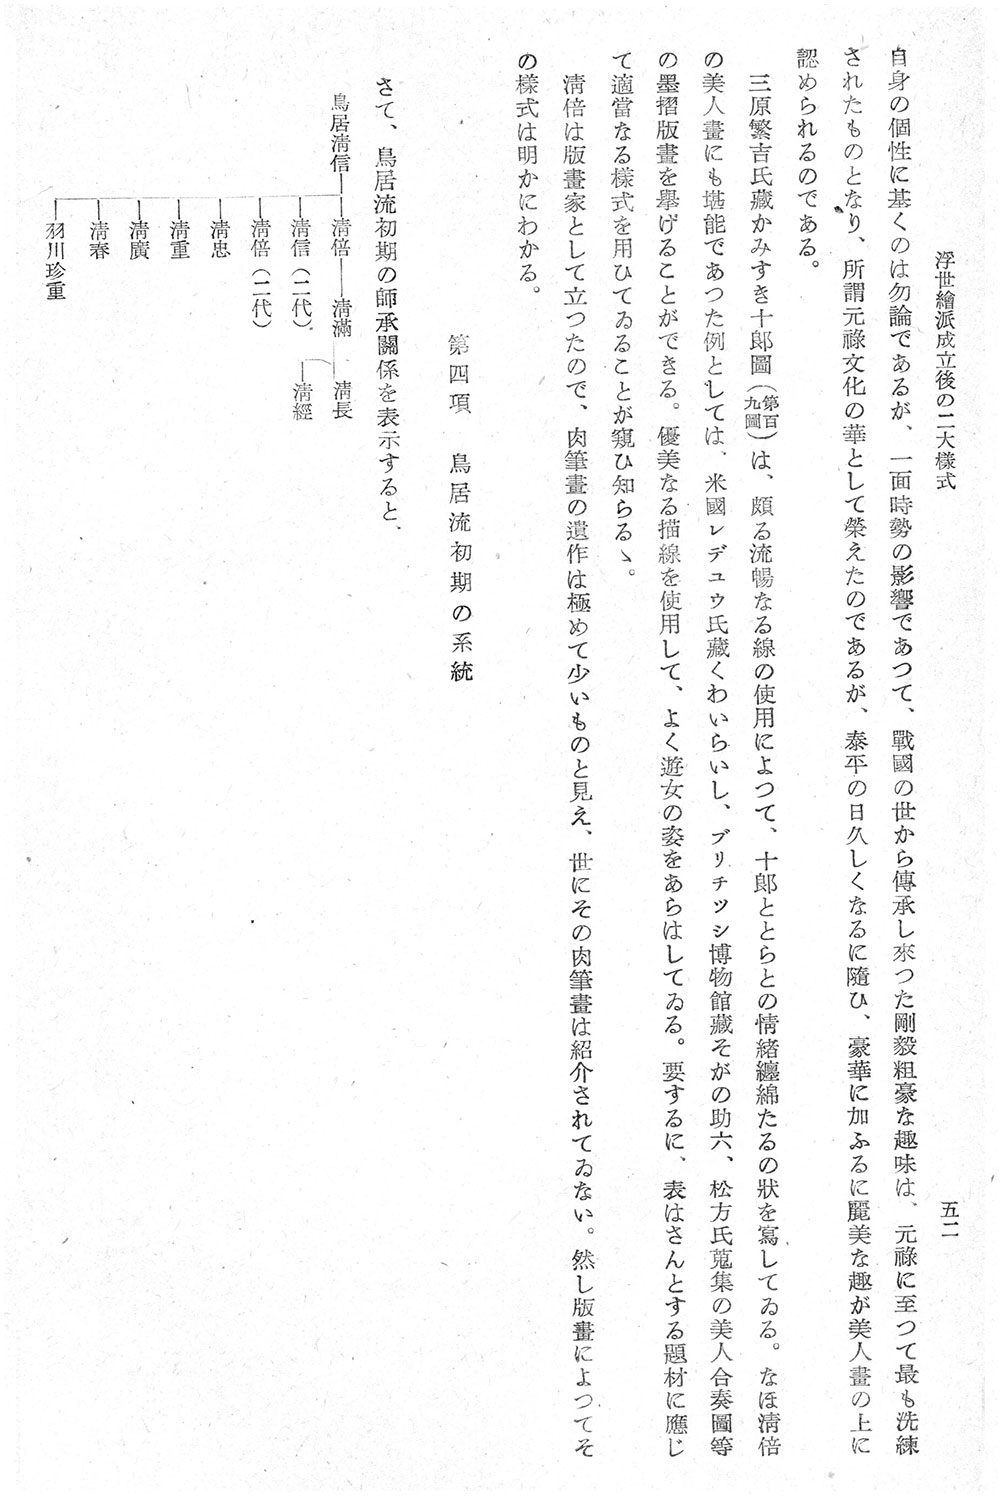 浮世繪派成立後の二大樣式
五二
自身の個性に基くのは勿論であるが、一面時勢の影響であつて、戰國の世から傳承し來つた剛毅粗豪な趣味は、元祿に至つて最も洗練
されたものとなり、所謂元祿文化の華として榮えたのであるが、泰平の日久しくなるに隨ひ、豪華に加ふるに麗美な趣が美人畫の上に
認められるのである。
三原繁吉氏藏かみすき十郎圖(第百九圖)は、頗る流暢なる線の使用によつて、十郎ととらとの情緒纏綿たるの狀を寫してゐる。なほ淸倍
の美人畫にも堪能であつた例としては、米國レデュウ氏藏くわいらいし、ブリチツシ博物館藏そがの助六、松方氏蒐集の美人合奏圖等
の墨摺版畫を擧げることができる。優美なる描線を使用して、よく遊女の姿をあらはしてゐる。要するに、表はさんとする題材に應じ
て適當なる樣式を用ひてゐることが窺ひ知らるゝ。
淸倍は版畫家として立つたので、肉筆畫の遺作は極めて少いものと見え、世にその肉筆畫は紹介されてゐない。然し版畫によつてそ
の樣式は明かにわかる。
第四項　鳥居流初期の系統
さて、鳥居流初期の師承關係を表示すると、
鳥居淸信
淸倍
淸滿
淸長
淸經
淸信(二代)
淸倍(二代)
淸忠
淸重
淸廣
淸春
羽川珍重